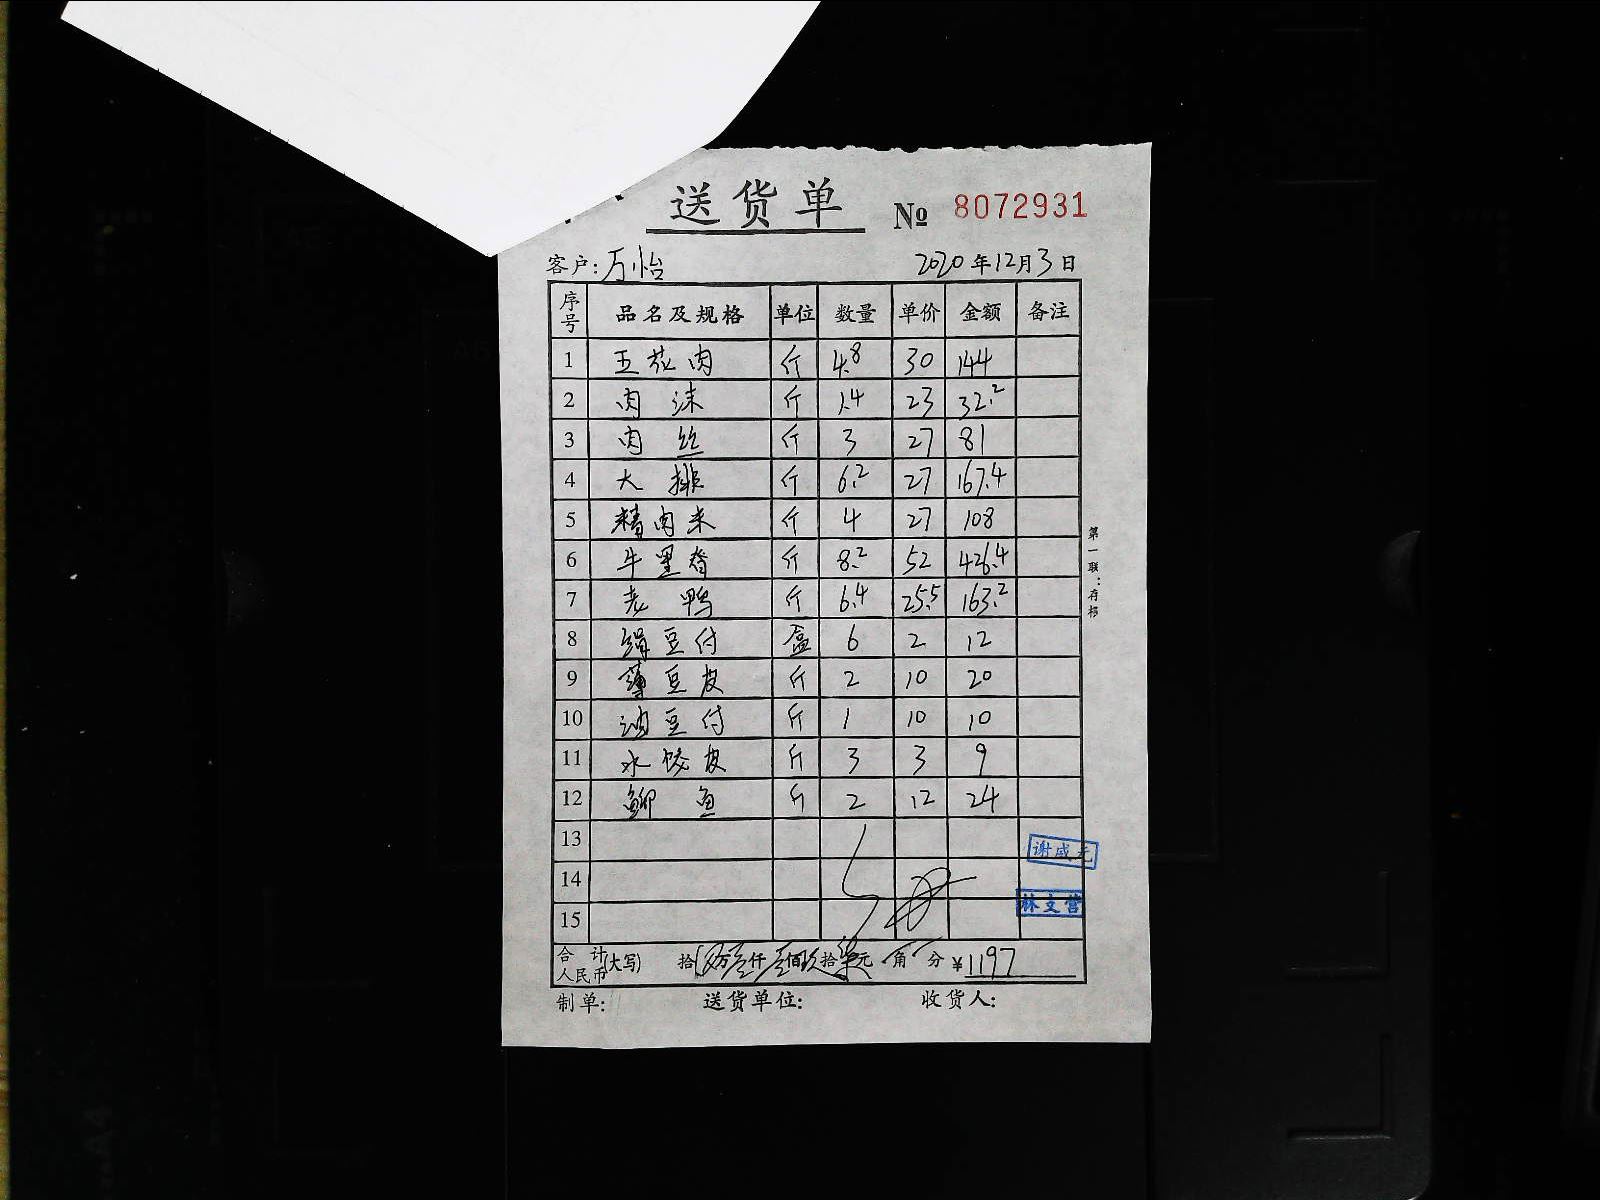 送货单 № 8072931
客户: 万怡 2020年12月3日
序号 品名及规格 单位 数量 单价 金额 备注
1 五花肉 斤 4.8 30 144
2 肉沫 斤 1.4 23 32.2
3 肉丝 斤 3 27 81
4 大排 斤 6.2 27 167.4
5 精肉米 斤 4 27 108
6 牛里脊 斤 8.2 52 426.4
7 老鸭 斤 6.4 25.5 163.2
8 绢豆付 盒 6 2 12
9 薄豆皮 斤 2 10 20
10 油豆付 斤 1 10 10
11 水饺皮 斤 3 3 9
12 鲫鱼 斤 2 12 24
13
谢成元
14
林文营
15
合计人民币(大写) 拾 万壹仟壹佰玖拾柒元 角 分 ¥1197
制单: 送货单位: 收货人:
第一联:存根